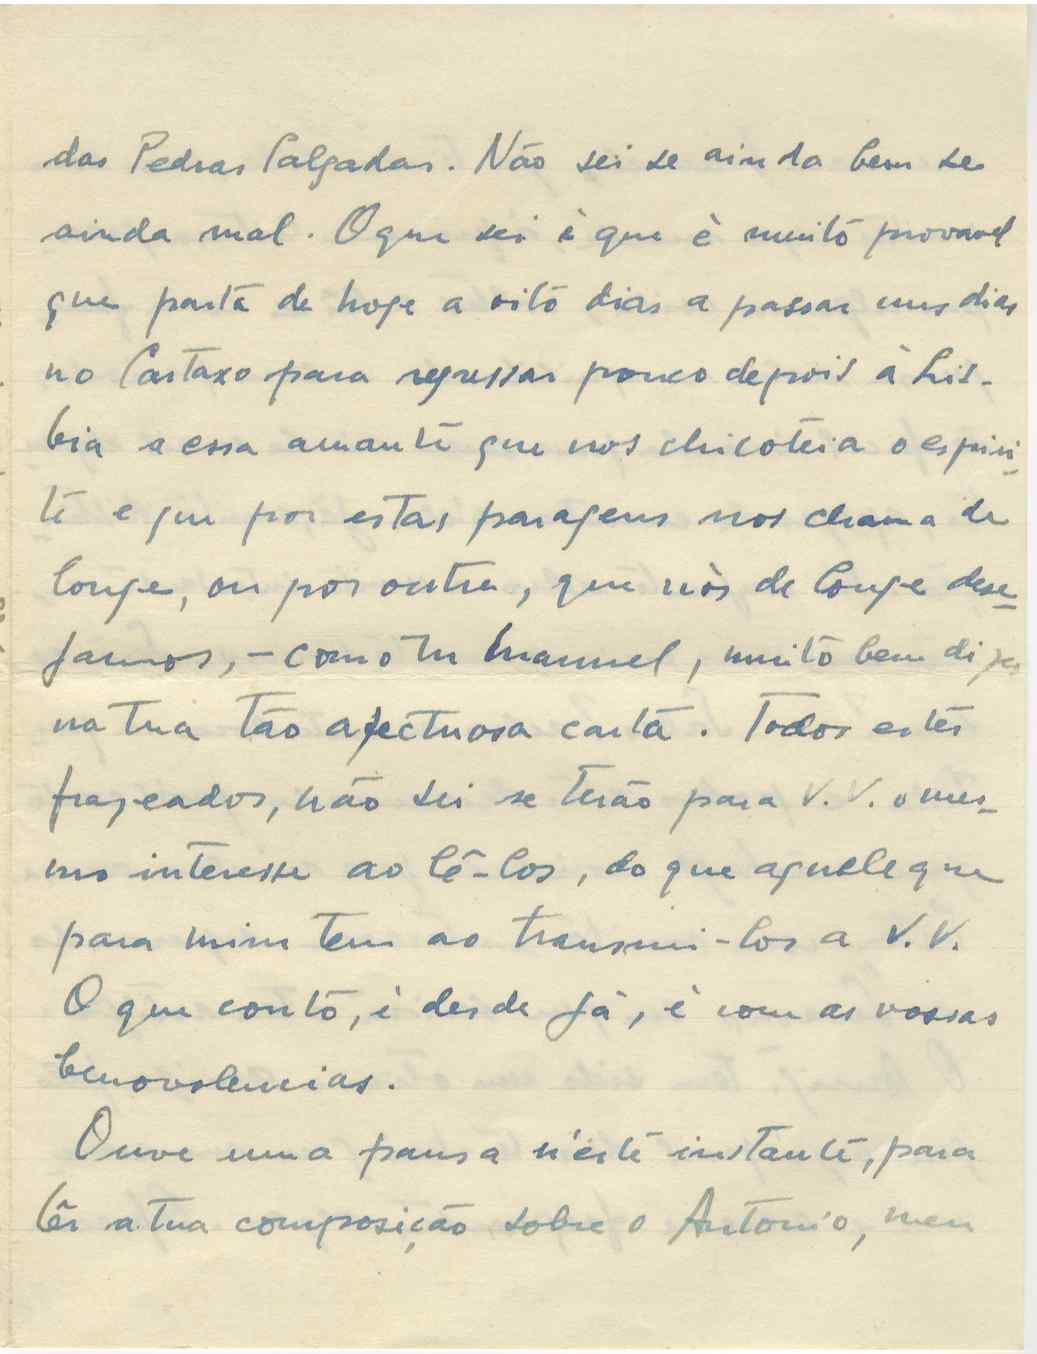 das Pedras Salgadas. Não sei se ainda bem se
ainda mal. O que sei é que è muito provavel
que parta de hoje a oito dias a passar uns dias
no Cartaxo para regressar pouco depois à Lis-
bia a essa amante que nos chicoteia o espiri-
to e que por estas paragens nos chama de
longe, ou por outra, que nòs de longe dese-
jamos, - como tu Manuel, muito bem dizes
na tua tão afectuosa carta. Todos estes
frazeados, não sei se terão para V. V. o mes-
mo interesse ao lê-los, do que aquele que
para mim tem ao transmi-los a V. V.
O que conto, è desde jà, è com as vossas
benovolencias.
Ouve uma pausa n'este instante, para
lêr a tua composição sobre o Antonio, meu